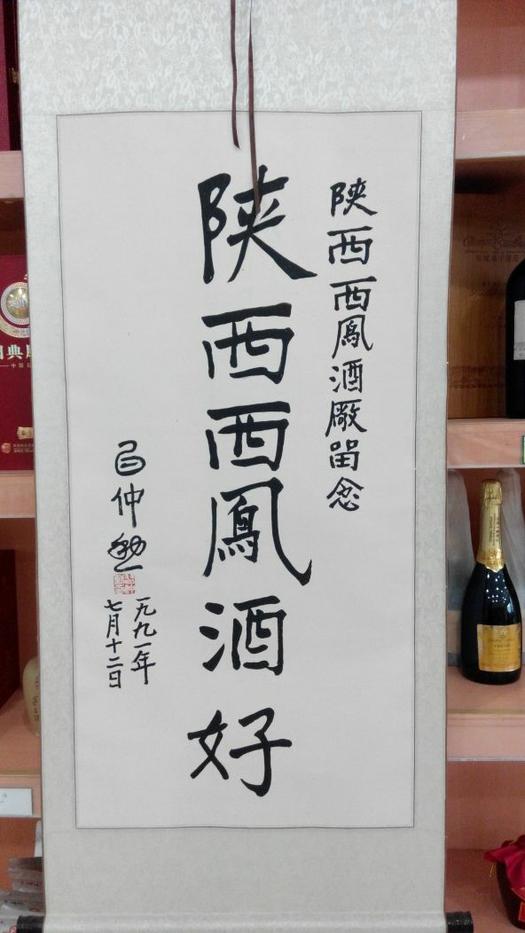 陝西西鳳酒廠留念
陝西西鳳酒好
习仲勋
一九九一年
七月十二日